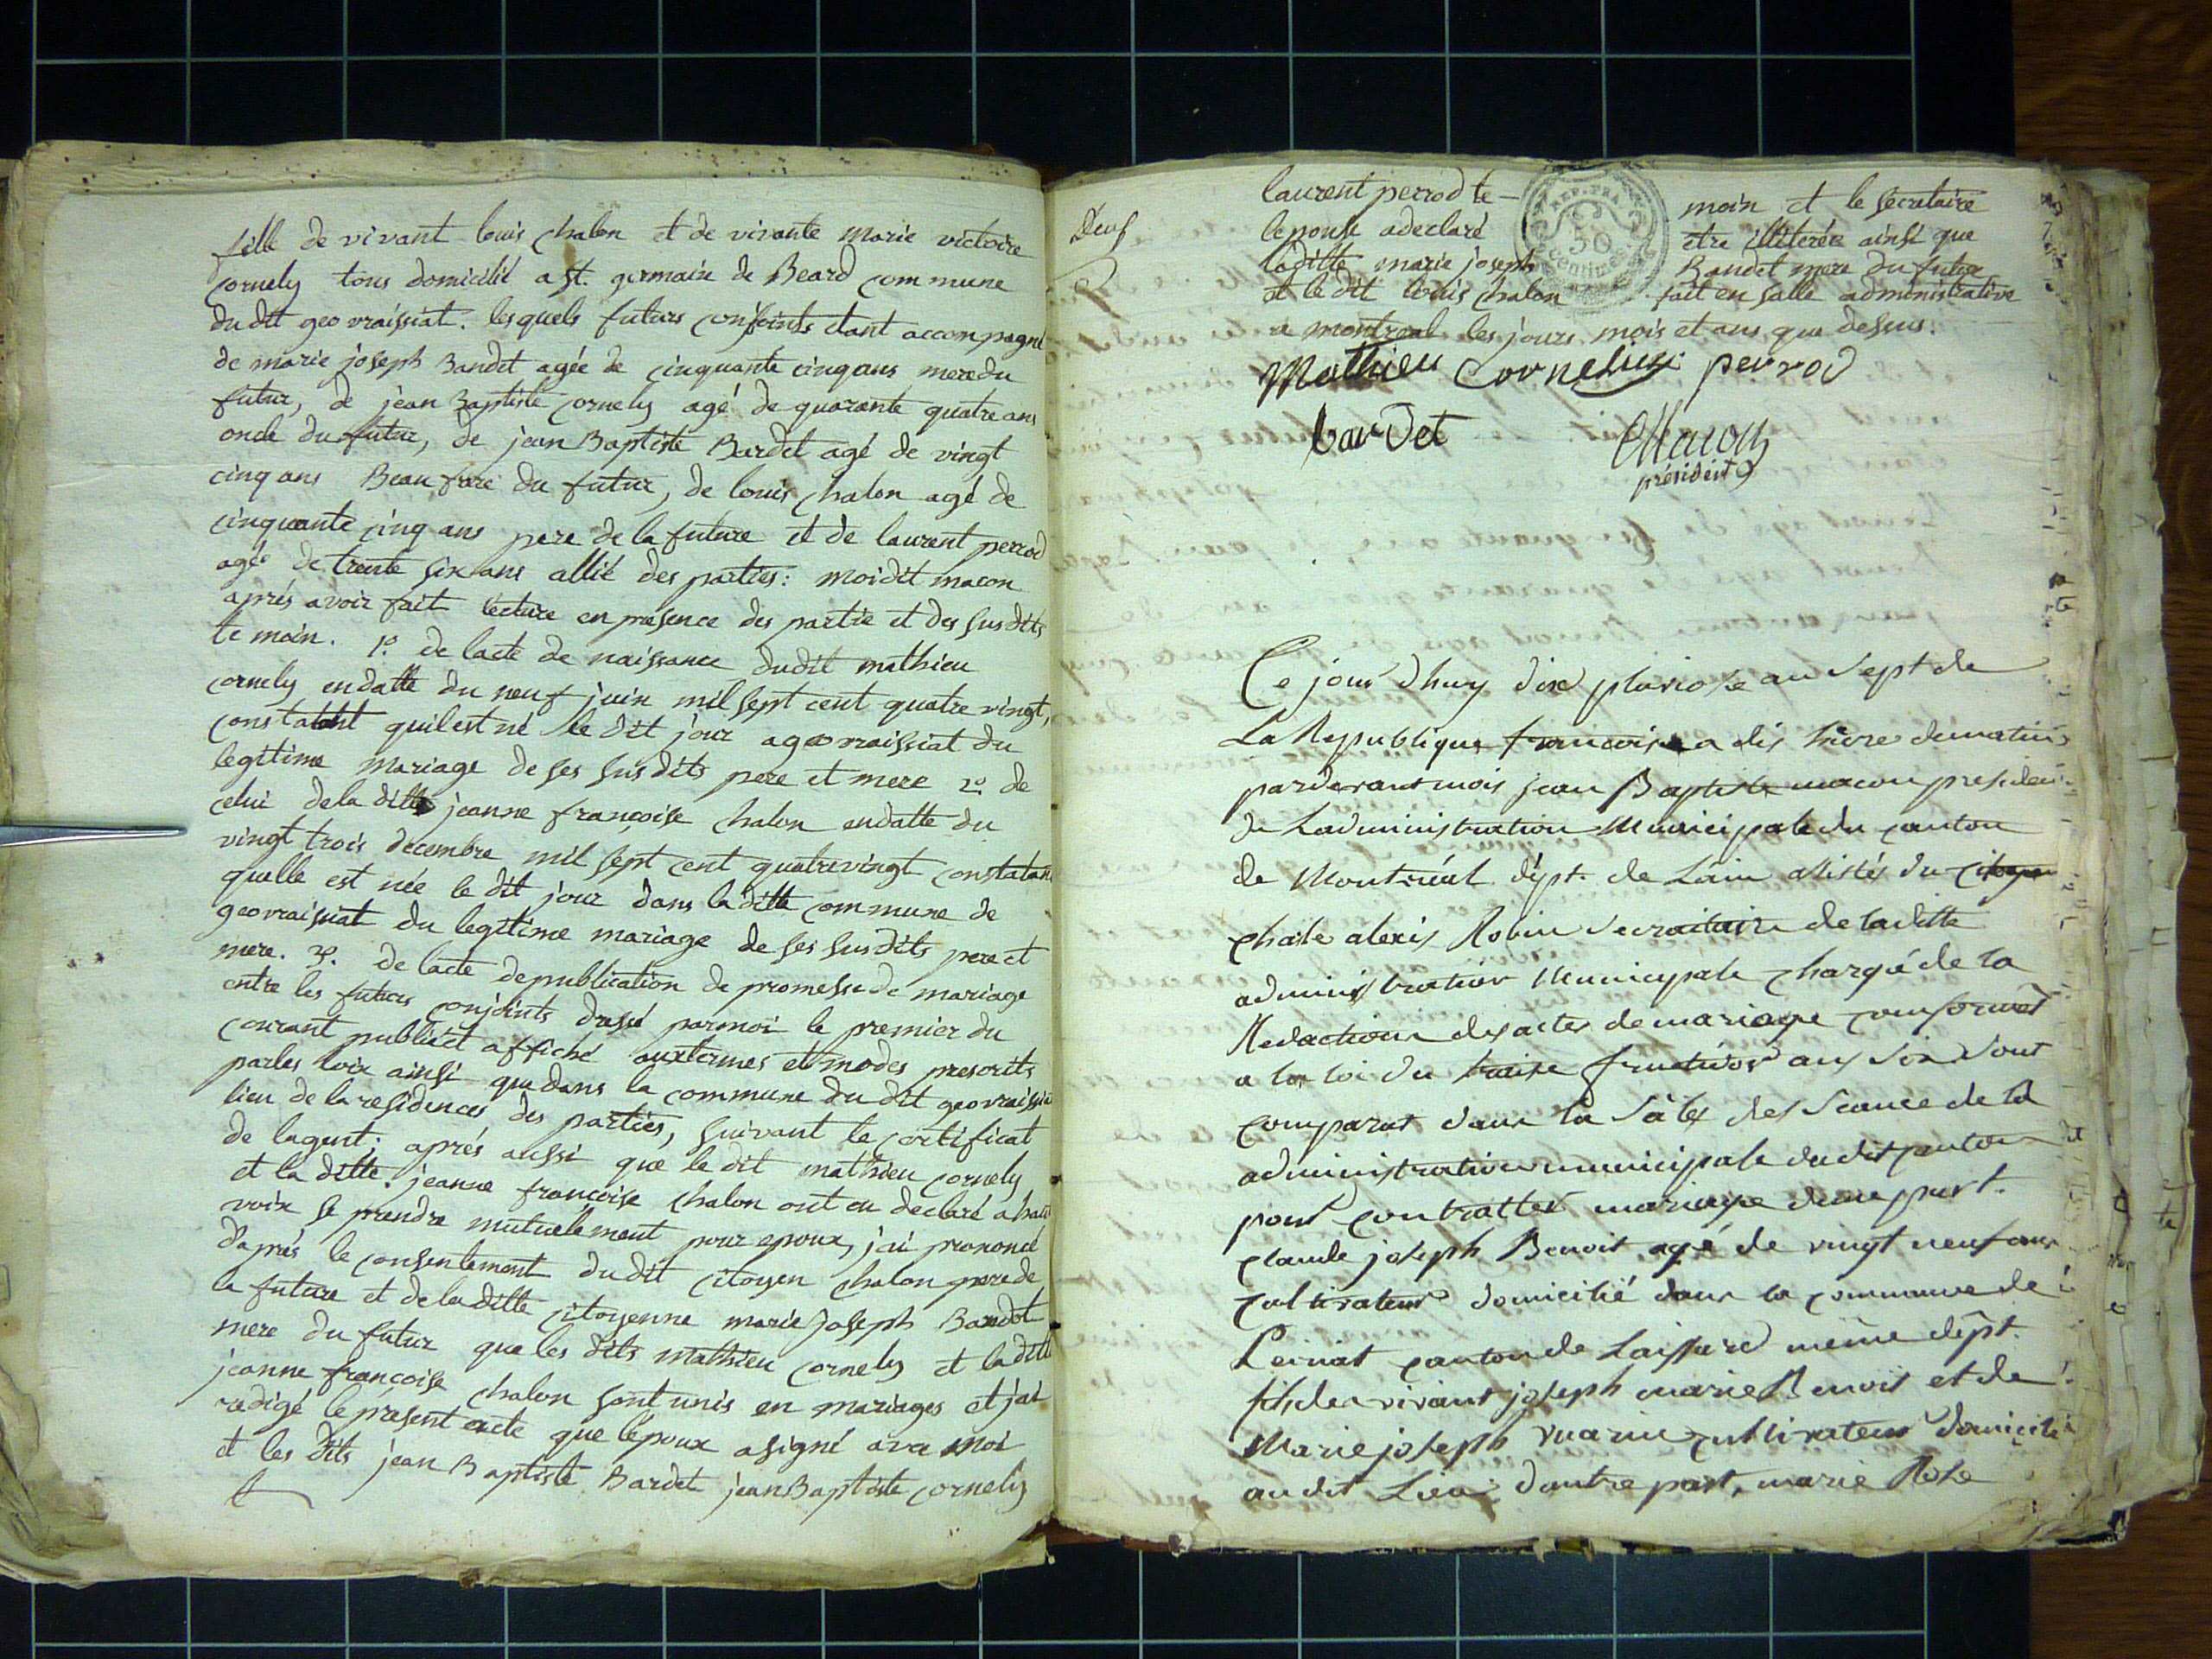 fille de vivant louis chalon et de vivante marie victoire
cornely tous domicilié a st. germain de Beard commune
du dit geovraissiat. lesquels futurs conjoints etant accompagné
de marie joseph Bandet agée de cinquante cinq ans mere du
futur, de jean Baptiste cornely agé de quarante quatre ans
oncle du futur, de jean Baptiste Bardet agé de vingt
cinq ans Beau frere du futur, de louis chalon agé de
cinquante cinq ans pere de la future et de laurent perrod
agé de trente six ans allié des parties: moidit macon
aprés avoir fait lecture en presence des partie et des susdits
temoin. 1o. de lacte de naissance dudit mathieu
cornely en datte du neuf juin mil sept cent quatre vingt,
constatant quil est né le dit jour a geovraissiat du
legitime mariage de ses susdits pere et mere 2o de
celui de la ditte jeanne françoise chalon en datte du
vingt trois decembre mil sept cent quatrevingt constatant
quelle est née le dit jour dans la ditte commune de
geovraissiat du legitime mariage de ses susdits pere et
mere. 3o. de lacte de publication de promesse de mariage
entre les futurs conjoints dressé par moi le premier du
courant publié et affiché aux termes et modes prescrits
par les loix ainsi que dans la commune du dit geovraissiat
lieu de la residences des parties, suivant le certificat
de lagent; aprés aussi que le dit mathieu cornely
et la ditte jeanne françoise chalon ont eu declaré a haute
voix se prendre mutuelement pour epoux, j'ai prononcé
d'aprés le consentement dudit citoyen chalon pere de
la future et de la ditte citoyenne marie joseph Bandet
mere du futur que les dits mathieu cornely et la ditte
jeanne françoise chalon sont unis en mariages et j'ai
redigé le present acte que lépoux a signé avec moi
et les dits jean Baptiste Bardet jean Baptiste cornely
laurent perrod te- moin et le secretaire
lepouse a declaré etre illiterée ainsi que
laditte marie joseph Bandet mere du futur
et le dit louis chalon fait en salle administrative
a montreal les jours mois et ans que dessus.
REP. FRA.
50
centimes
Mathieu Cornelius perrod
bardet Macon
président
Ce jour dhuy dix pluviose an sept de
La Republique francaise a dix heure du matin
pardevant mois jean Baptiste macon president
de Ladministration Municipale du canton
de Montréal dépt. de Lain assistés du citoyen
chasle alexis Robin secraitaire de la ditte
administration Municipale chargé de la
Redaction des actes de mariage conformét
a la loi du treise fructidor ans six sont
comparut dans la sales des seance de la
administration municipale dudit canton
pour contratter mariage dune part.
claude joseph Benoit agé de vingt neuf ans
cultivateur domicilié dans la commune de
Leiriat canton de Laissard même dépt.
fils de vivant joseph marie Benoit et de
Marie joseph cultivateur domicilié
audit Lieu: dautre part, marie Rose